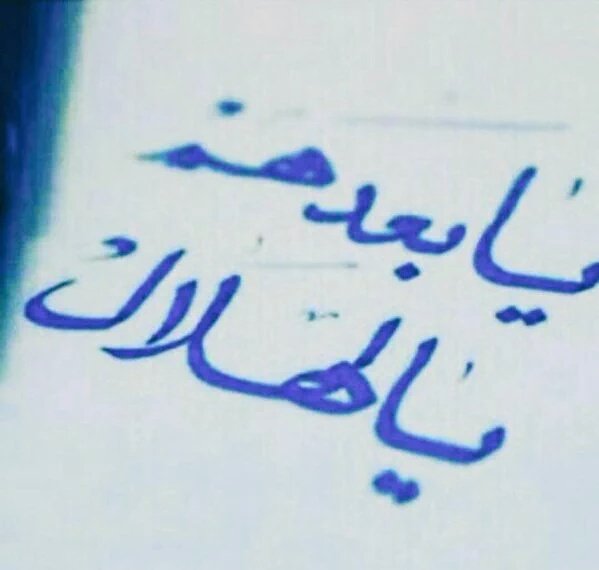 يا بعد هنم
يا لهلاك